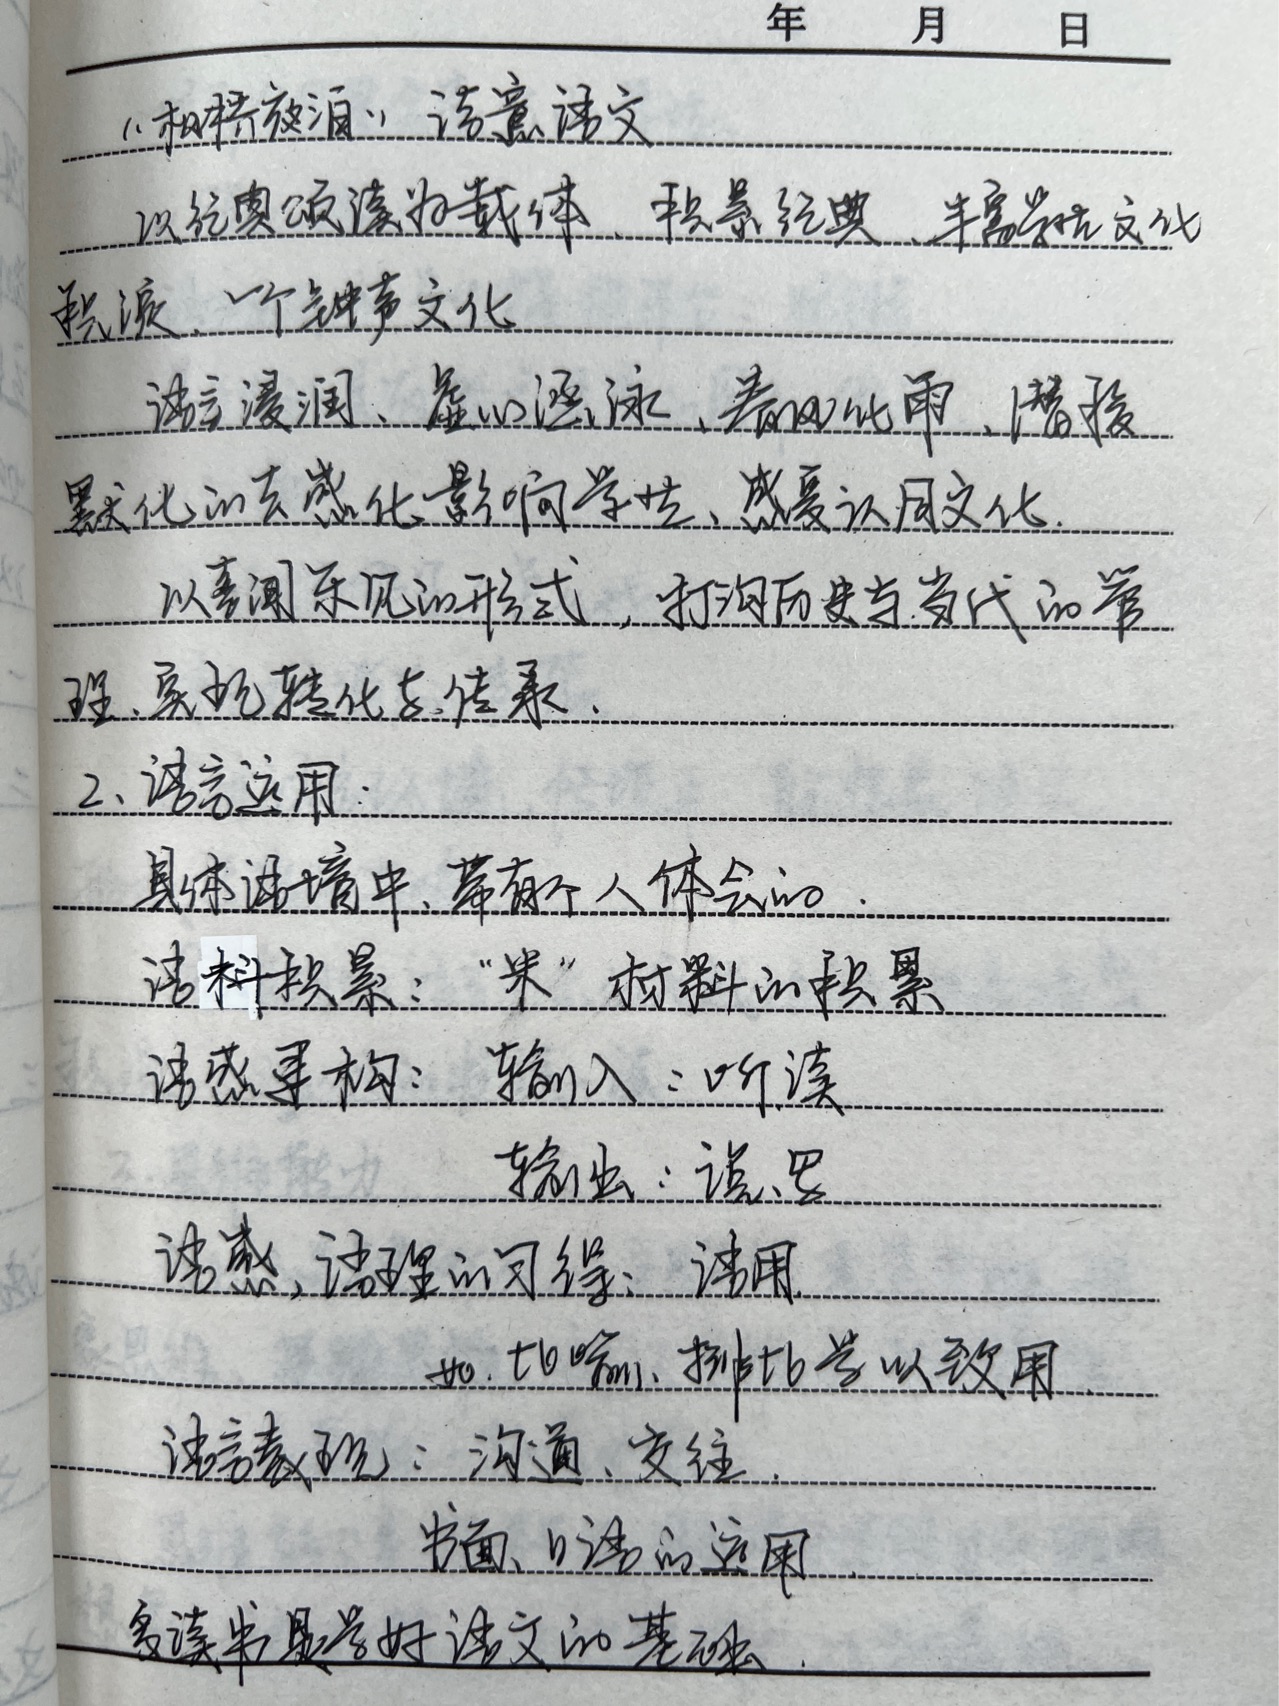 年 月 日
“相桥放泪” 诗意语文
以经典颂读为载体、积累经典、丰富学生文化
积淀、一个钟声文化
语言浸润、虚心涵泳、春风化雨、潜移
默化的去感化影响学生、感受认同文化.
以喜闻乐见的形式，打沟历史与当代的管
理、实现转化与传承.
2、语言运用：
具体语境中、带有个人体会的.
语料积累：“米”材料的积累
语感建构：输入：听、读
输出：说、写
语感，语理的习得：语用.
如.比喻、排比学以致用.
语言表现：沟通、交往.
书面、口语的运用.
多读书是学好语文的基础.